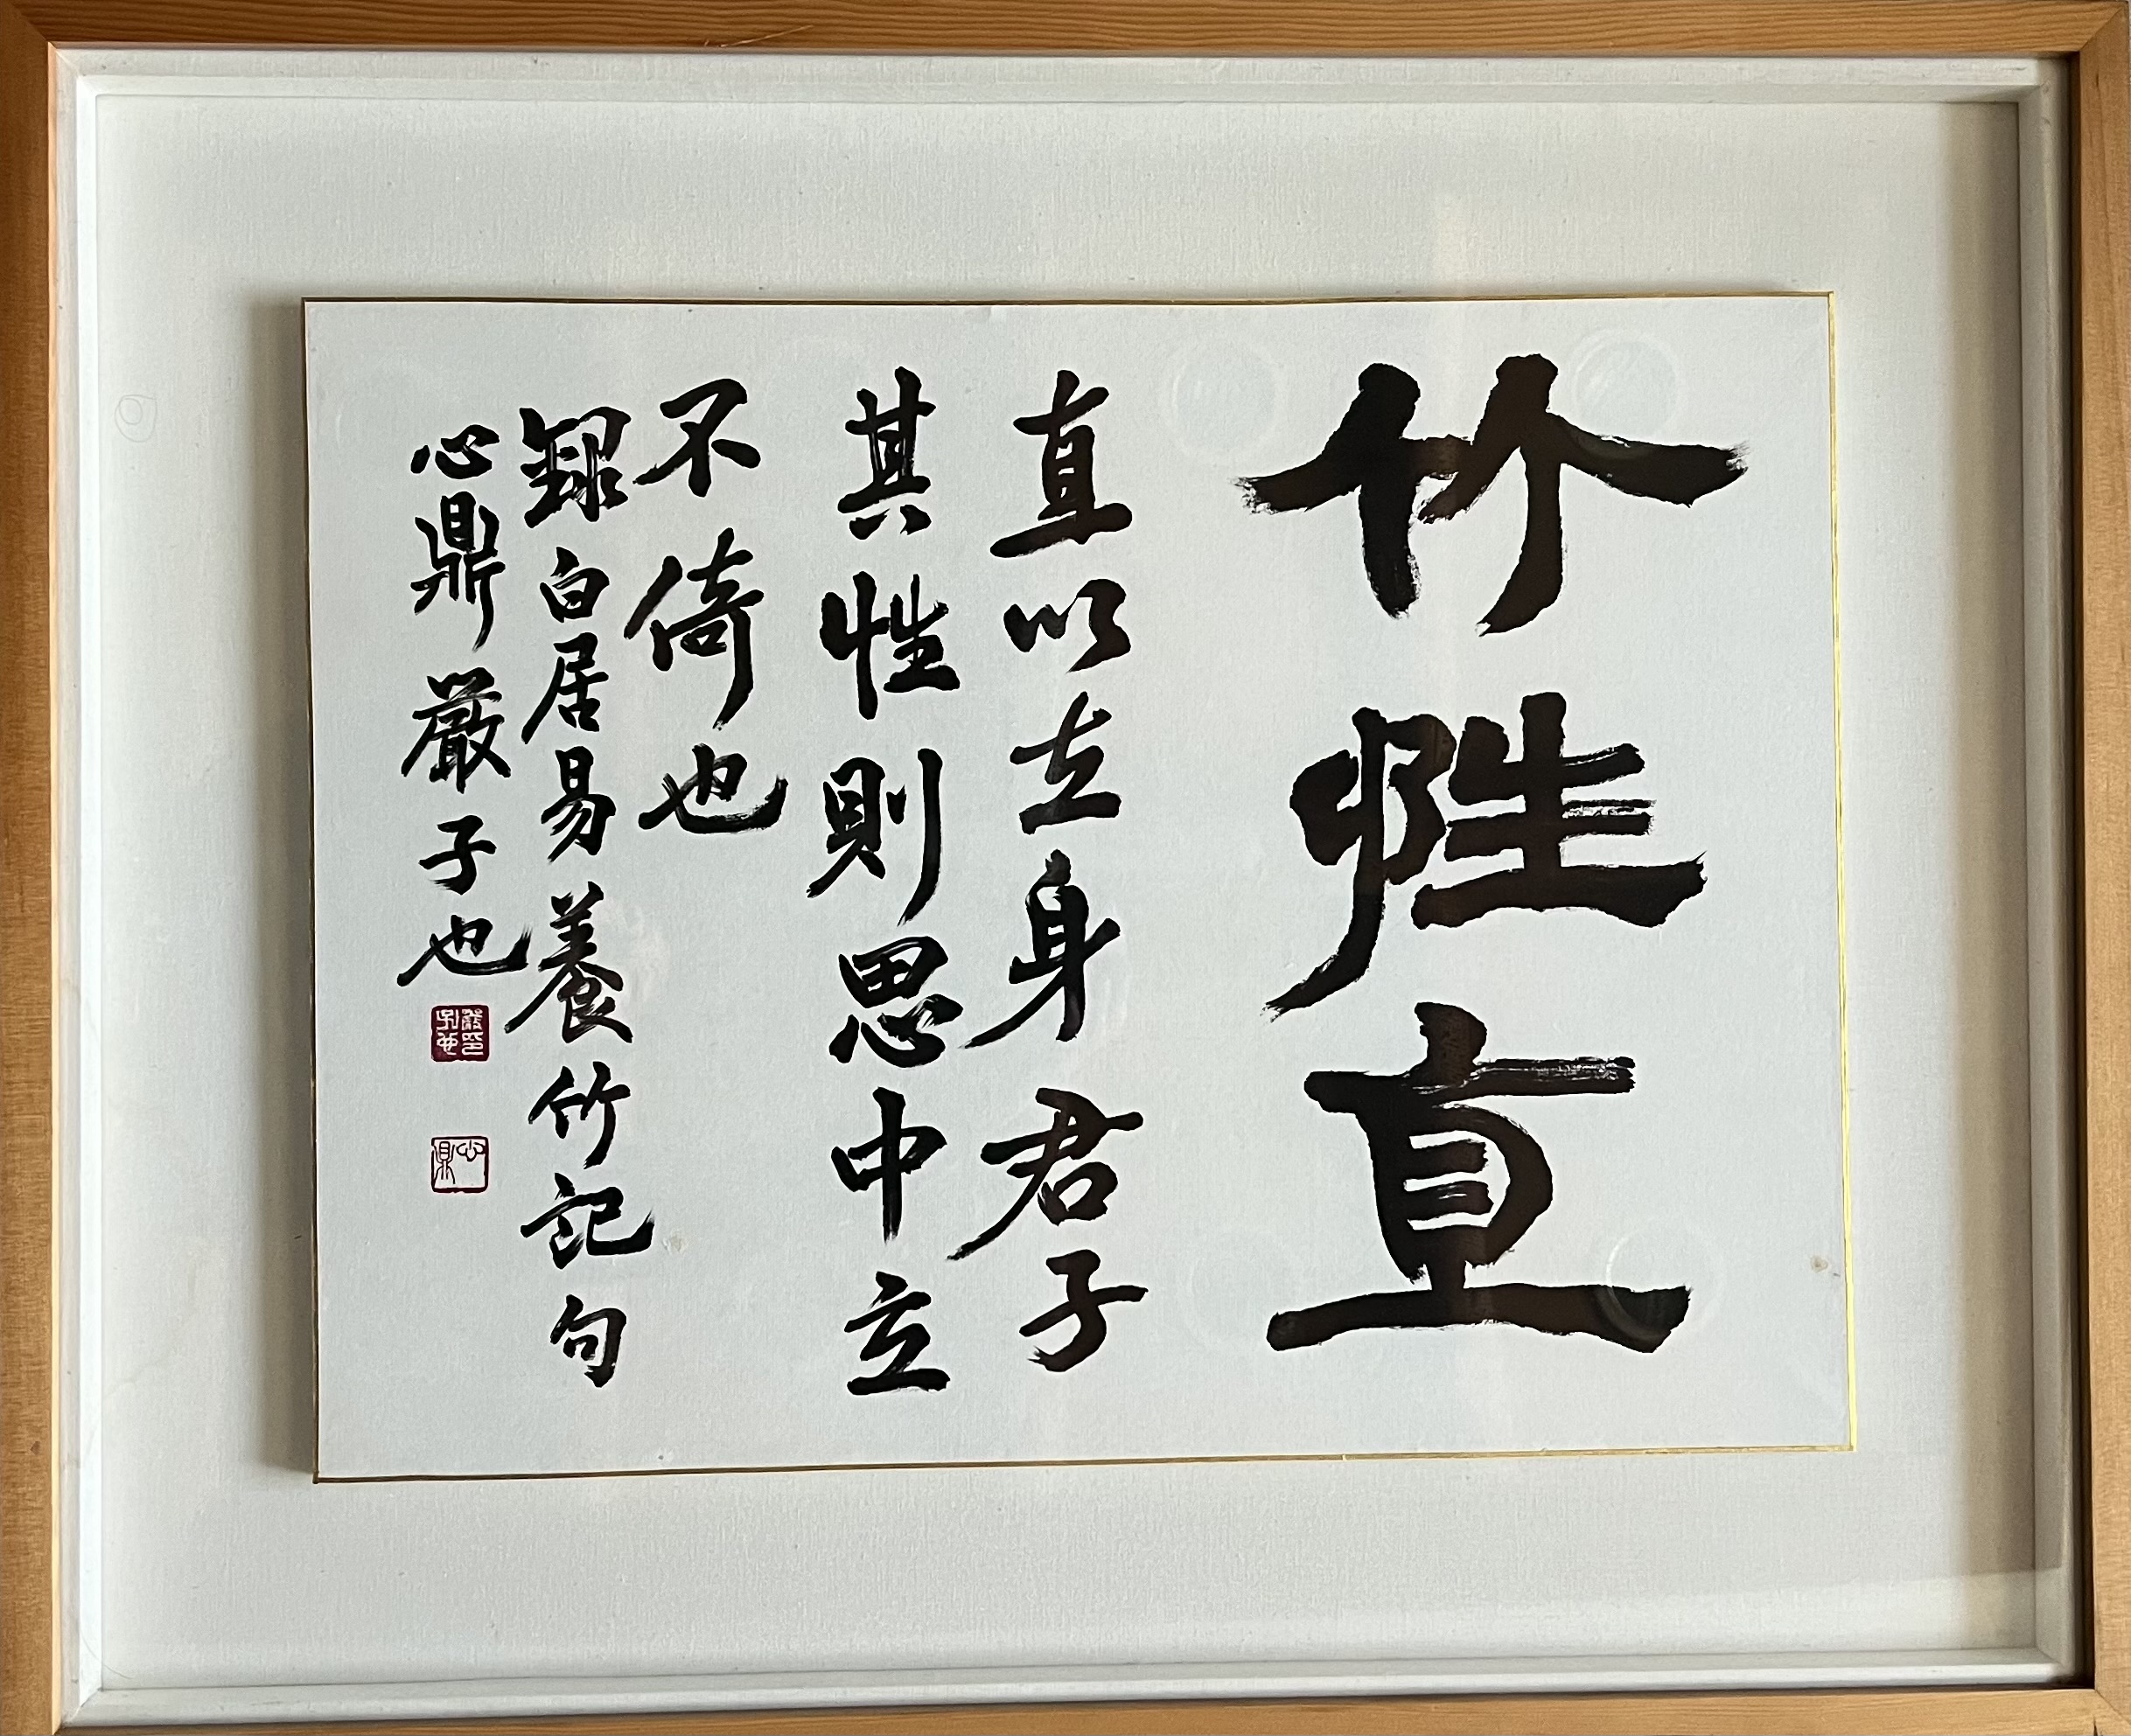 竹性直
直以立身君子
其性則思中立
不倚也
録白居易養竹記句
心鼎嚴子也
心鼎